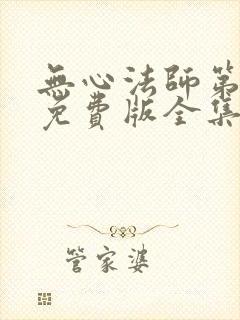 無心法師第
免費版全集
管家婆